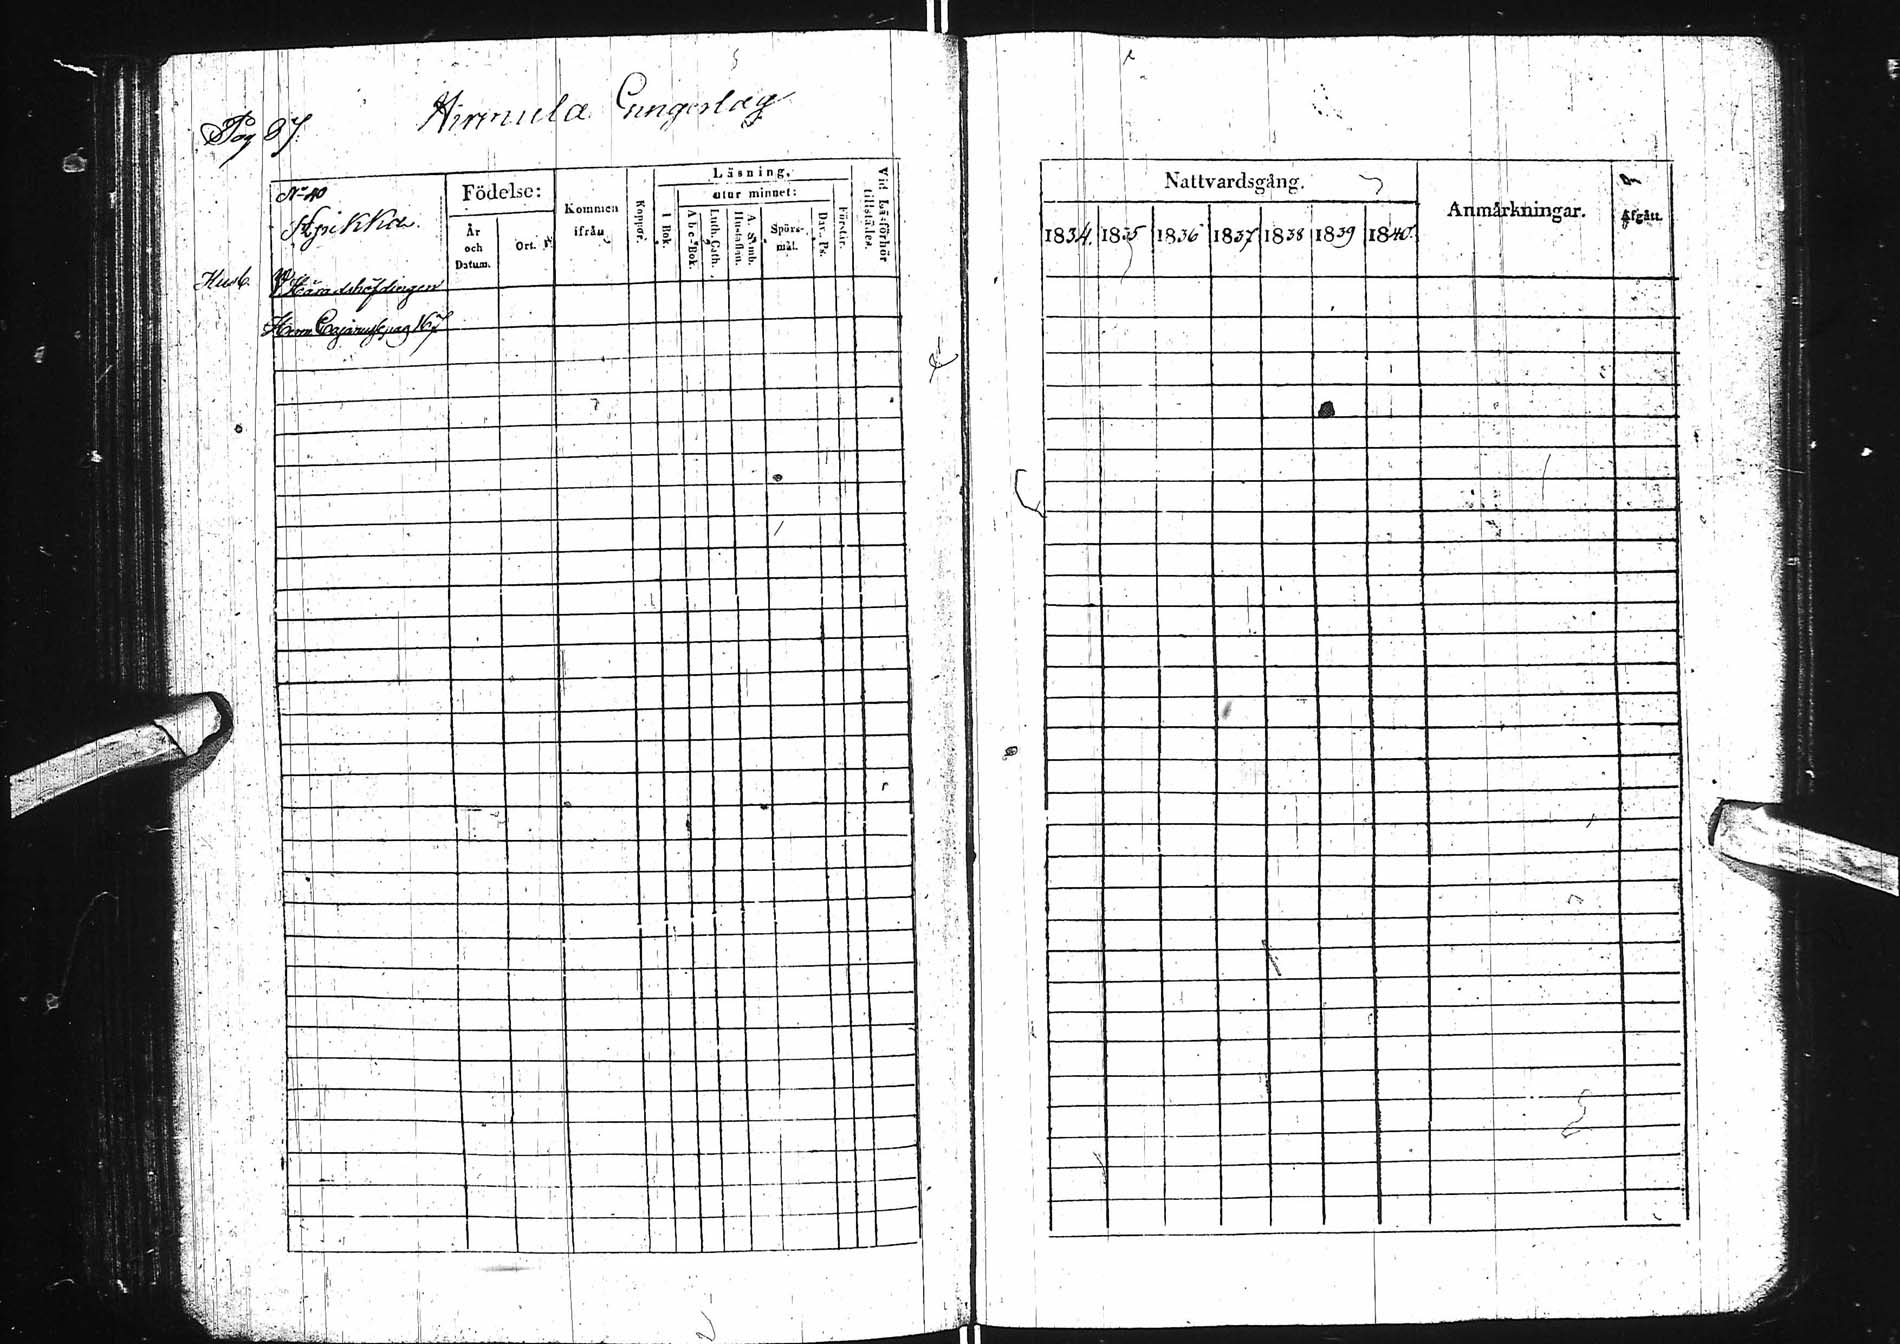 Pag 87.
Hirmula Gungerlag
N:o 40
Hyrikka.
Födelse:
År och Datum.
Ort.
Kommen ifrån
Koppor.
Läsning,
utur minnet:
I Bok.
Abc-Bok.
Luth. Cath.
A. Symb. Hustaflan.
Spörsmål.
Dav. Ps.
Förstår.
Vid Läsförhör tillstädes.
Husb.
V Häradshöfdingen
Herr pag 167
Nattvardsgång.
1834. 1835 1836 1837 1838 1839 1840.
Anmärkningar.
Afgått.